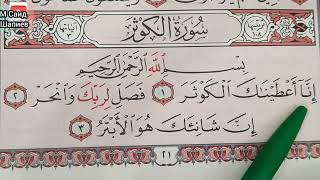 М Саид
Шапиев
سُورَةُ الْكَوْثَرِ
بِسْمِ اللَّهِ الرَّحْمَٰنِ الرَّحِيمِ
إِنَّا أَعْطَيْنَاكَ الْكَوْثَرَ ١ فَصَلِّ لِرَبِّكَ وَانْحَرْ ٢
إِنَّ شَانِئَكَ هُوَ الْأَبْتَرُ ٣